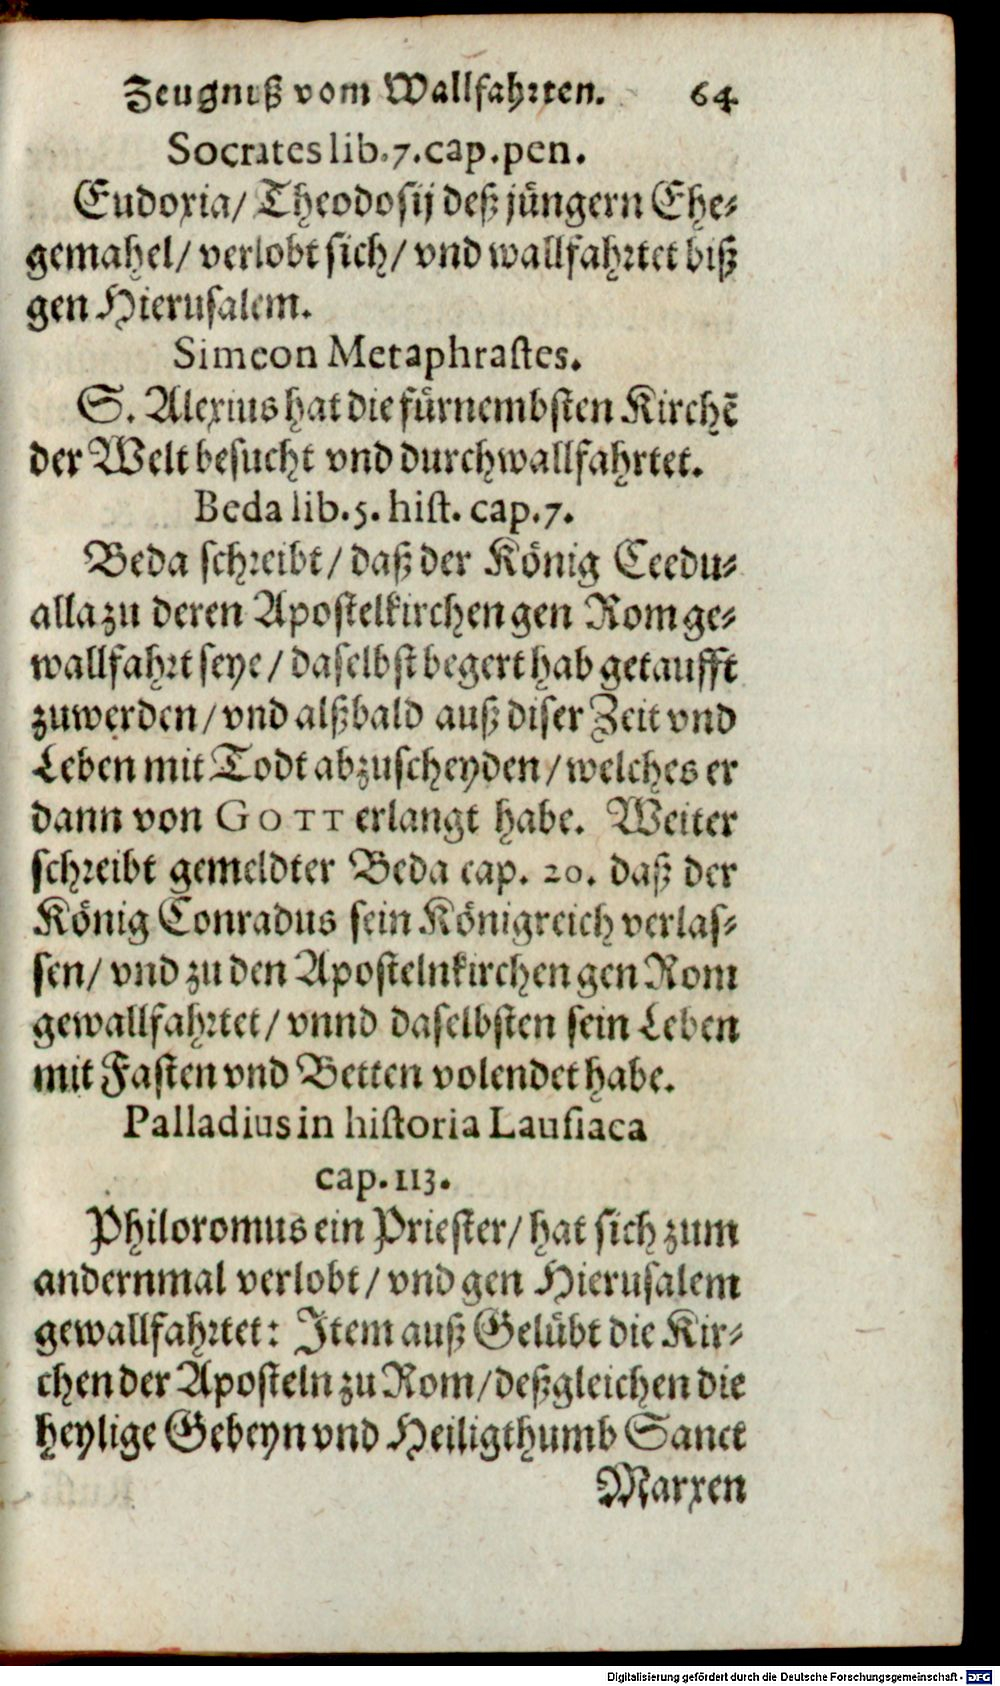 Zeugniß vom Wallfahrten. 64
Socrates lib. 7. cap. pen.
Eudoxia/ Theodosij deß jüngern Ehe-
gemahel/ verlobt sich/ vnd wallfahrtet biß
gen Hierusalem.
Simeon Metaphrastes.
S. Alexius hat die fürnembsten Kirchē
der Welt besucht vnd durchwallfahrtet.
Beda lib. 5. hist. cap. 7.
Beda schreibt/ daß der König Ceedu-
alla zu deren Apostelkirchen gen Rom ge-
wallfahrt seye/ daselbst begert hab getaufft
zuwerden/ vnd alßbald auß diser Zeit vnd
Leben mit Todt abzuscheyden/ welches er
dann von GOTT erlangt habe. Weiter
schreibt gemeldter Beda cap. 20. daß der
König Conradus sein Königreich verlas-
sen/ vnd zu den Apostelnkirchen gen Rom
gewallfahrtet/ vnnd daselbsten sein Leben
mit Fasten vnd Betten volendet habe.
Palladius in historia Lausiaca
cap. 113.
Philoromus ein Priester/ hat sich zum
andernmal verlobt/ vnd gen Hierusalem
gewallfahrtet: Item auß Gelübt die Kir-
chen der Aposteln zu Rom/ deßgleichen die
heylige Gebeyn vnd Heiligthumb Sanct
Marxen
Digitalisierung gefördert durch die Deutsche Forschungsgemeinschaft - DFG